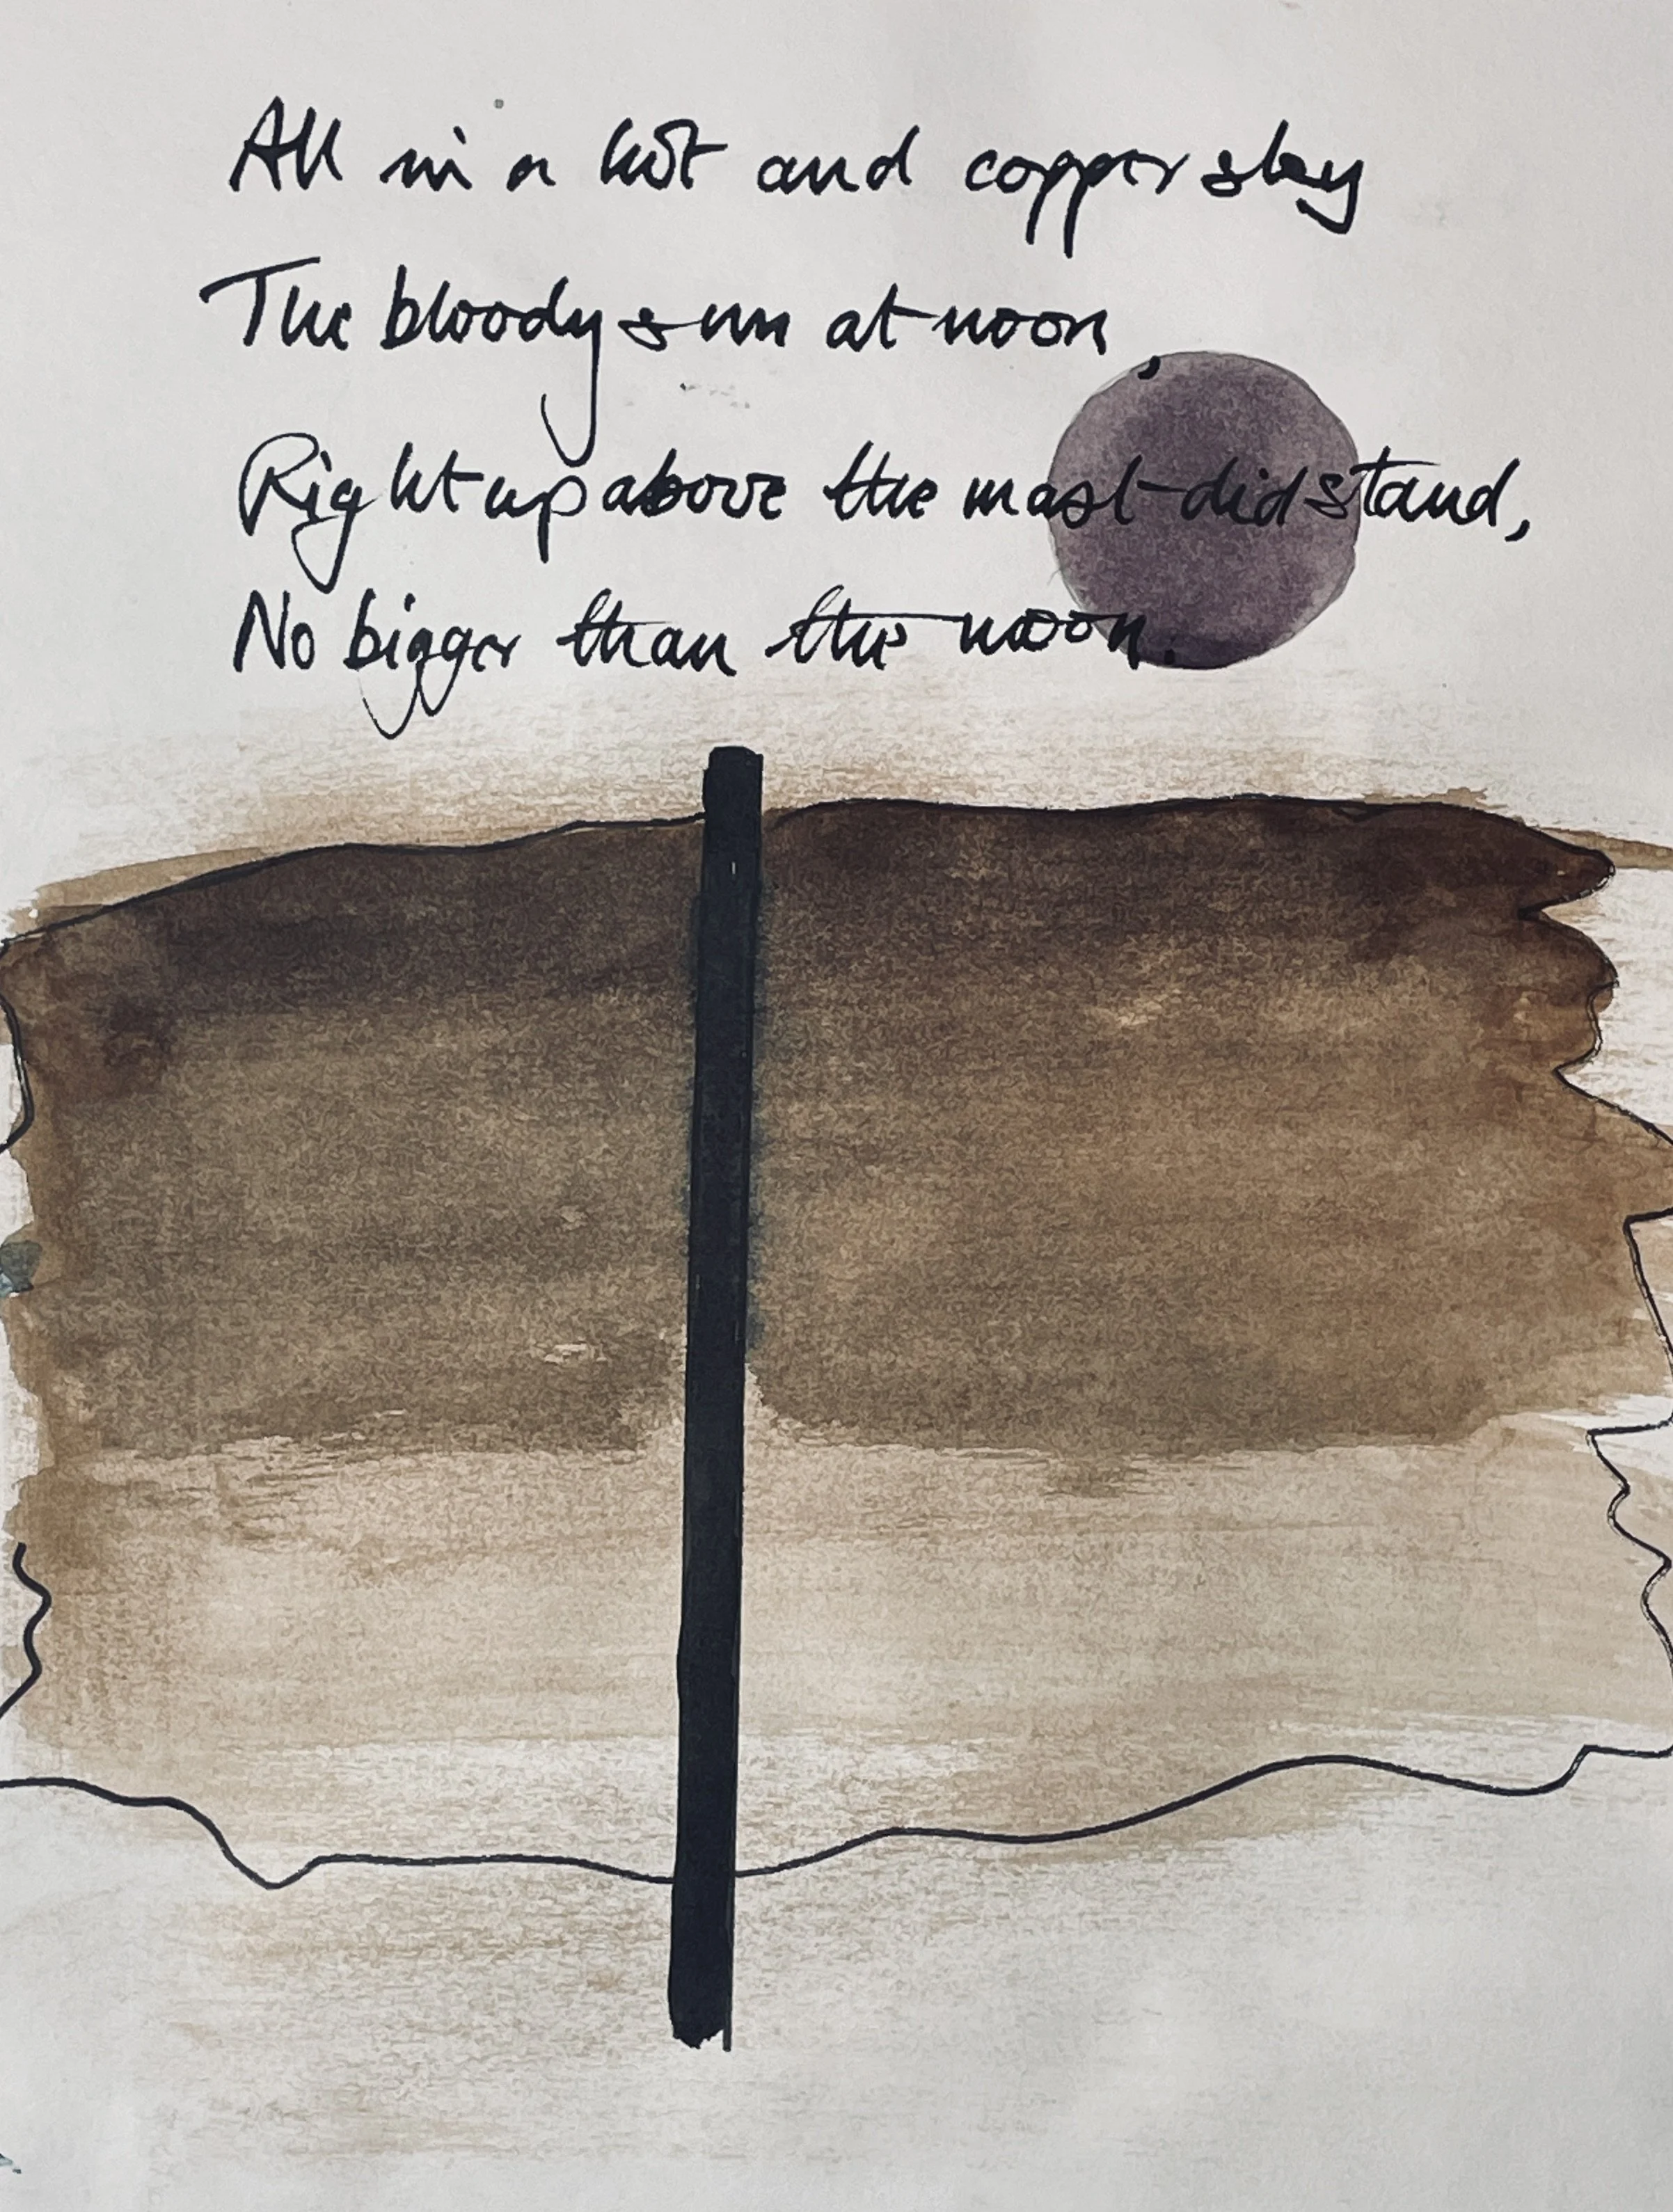 All in a hot and copper sky
The bloody sun at noon,
Right up above the mast did stand,
No bigger than the moon.